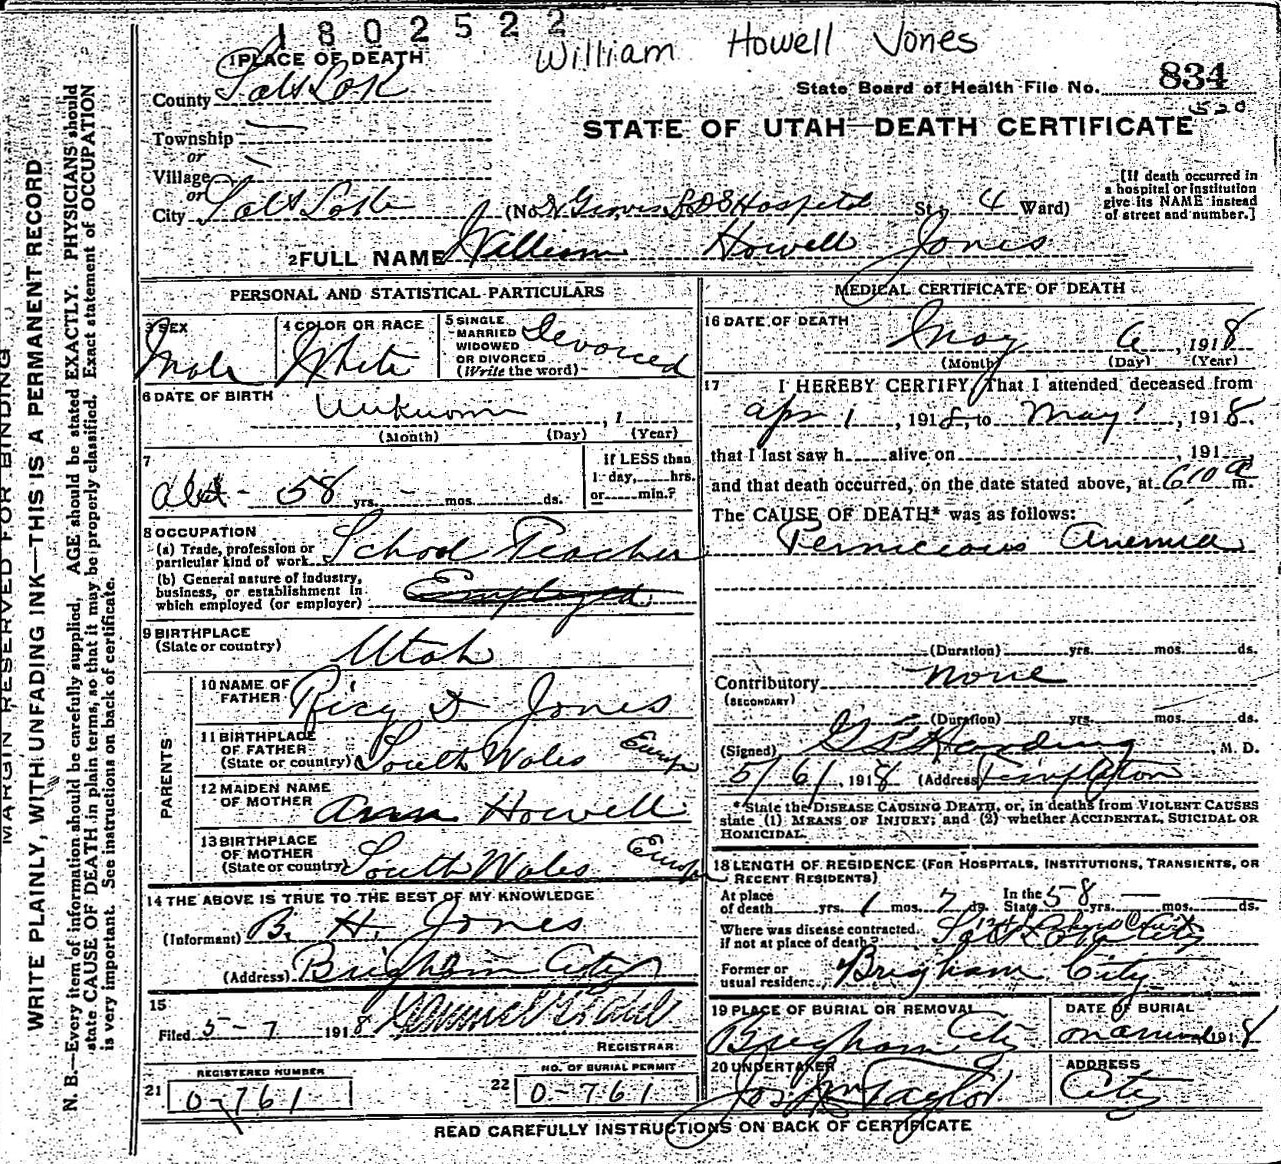 1802522
William Howell Jones
1 PLACE OF DEATH
State Board of Health File No. 834
County Salt Lake
STATE OF UTAH—DEATH CERTIFICATE
Township
or
Village
or
City Salt Lake (No. LDS Hospital St. 4 Ward)
[If death occurred in
a hospital or institution
give its NAME instead
of street and number.]
2 FULL NAME William Howell Jones
PERSONAL AND STATISTICAL PARTICULARS
3 SEX Male
4 COLOR OR RACE White
5 SINGLE
MARRIED
WIDOWED
OR DIVORCED
(Write the word) Devorced
6 DATE OF BIRTH Unknown , 1
(Month) (Day) (Year)
7 abt - 58 yrs. - mos. ds.
If LESS than
1 day, hrs.
or min.?
8 OCCUPATION
(a) Trade, profession or
particular kind of work School Teacher
(b) General nature of industry,
business, or establishment in
which employed (or employer) Employed
9 BIRTHPLACE
(State or country) Utah
PARENTS
10 NAME OF
FATHER Ricy D Jones
11 BIRTHPLACE
OF FATHER
(State or country) South Wales Europe
12 MAIDEN NAME
OF MOTHER Ann Howell
13 BIRTHPLACE
OF MOTHER
(State or country) South Wales Europe
14 THE ABOVE IS TRUE TO THE BEST OF MY KNOWLEDGE
(Informant) B. H. Jones
(Address) Brigham City
15
Filed 5-7 1918
REGISTRAR
21 REGISTERED NUMBER
0-761
22 NO. OF BURIAL PERMIT
0-761
MEDICAL CERTIFICATE OF DEATH
16 DATE OF DEATH
May 6 , 1918
(Month) (Day) (Year)
17 I HEREBY CERTIFY, That I attended deceased from
apr 1 , 1918, to May 1 , 1918
that I last saw h alive on , 191
and that death occurred, on the date stated above, at 610 a m.
The CAUSE OF DEATH* was as follows:
Pernicious Anemia
(Duration) yrs. mos. ds.
Contributory None
(SECONDARY)
(Duration) yrs. mos. ds.
(Signed) Harding , M. D.
5/6/, 1918 (Address) Templeton
*State the DISEASE CAUSING DEATH, or, in deaths from VIOLENT CAUSES
state (1) MEANS OF INJURY; and (2) whether ACCIDENTAL, SUICIDAL OR
HOMICIDAL.
18 LENGTH OF RESIDENCE (FOR HOSPITALS, INSTITUTIONS, TRANSIENTS, OR
RECENT RESIDENTS)
At place
of death yrs. 1 mos. 7 ds.
In the
State 58 yrs. ds.
Where was disease contracted,
if not at place of death?
Former or
usual residence, Brigham City
19 PLACE OF BURIAL OR REMOVAL
Brigham City
DATE OF BURIAL
1918
20 UNDERTAKER
Jos Wm Taylor
ADDRESS
City
READ CAREFULLY INSTRUCTIONS ON BACK OF CERTIFICATE
MARGIN RESERVED FOR BINDING
WRITE PLAINLY, WITH UNFADING INK—THIS IS A PERMANENT RECORD
N. B.—Every item of information should be carefully supplied. AGE should be stated EXACTLY. PHYSICIANS should
state CAUSE OF DEATH in plain terms, so that it may be properly classified. Exact statement of OCCUPATION
is very important. See instructions on back of certificate.